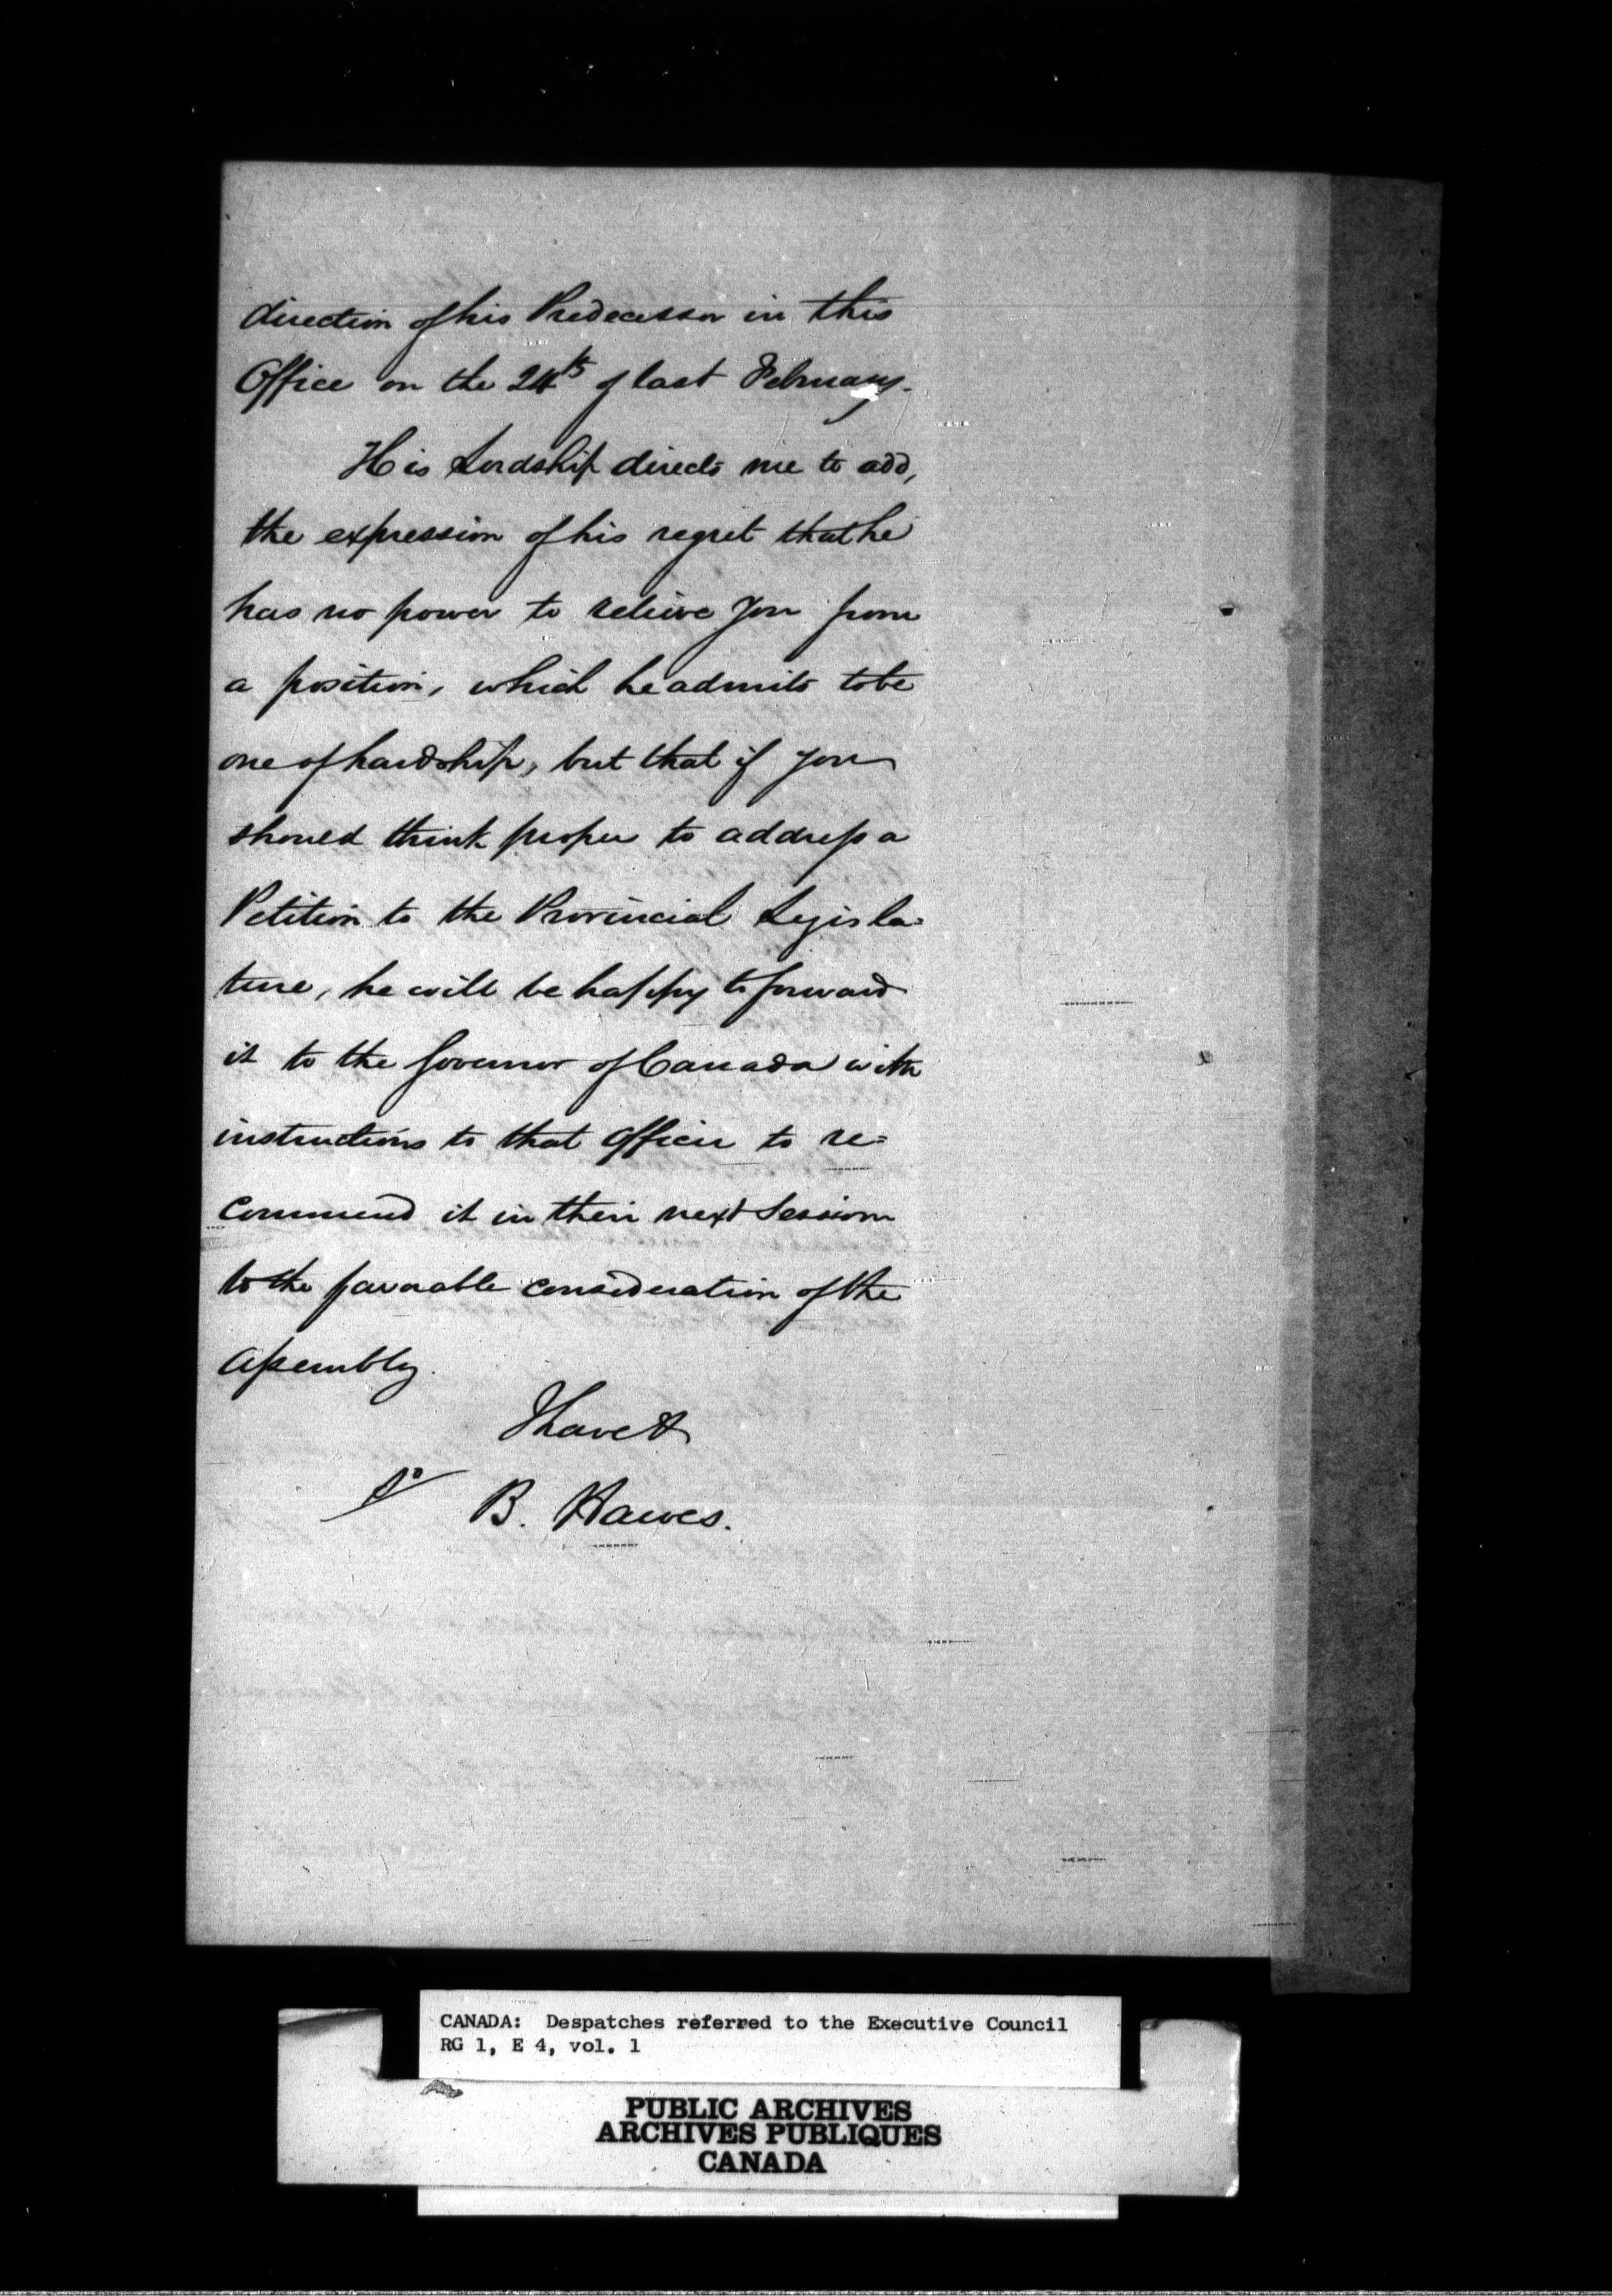 direction of his Predecessor in this
Office on the 24th of last February.
His Lordship directs me to add,
the expression of his regret that he
has no power to relieve you from
a position, which he admits to be
one of hardship, but that if you
should think proper to address a
Petition to the Provincial Legisla=
ture, he will be happy to forward
it to the Governor of Canada with
instructions to that Officer to re=
commend it in their next Session
to the favorable consideration of the
Assembly.
I have &
B. Hawes.
CANADA: Despatches referred to the Executive Council
RG 1, E 4, vol. 1
PUBLIC ARCHIVES
ARCHIVES PUBLIQUES
CANADA